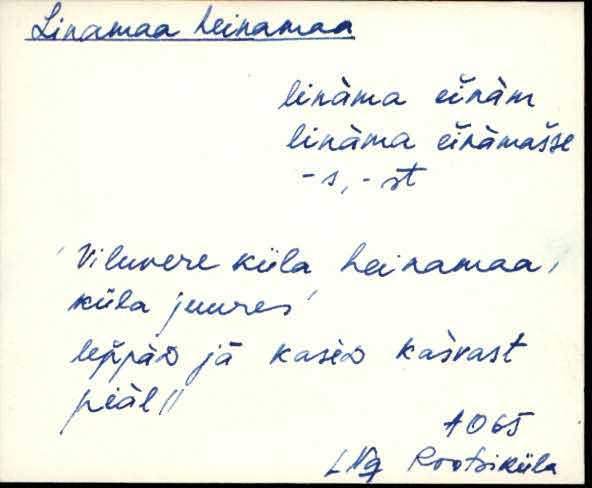 Linamaa heinamaa
linàma eìnàm
linàma eìnàmaše
-s, -st
'Viluvere küla heinamaa,
küla juures'
leppàD jā kasèD kašvast
piàl //
AO65
LNg Rootsiküla